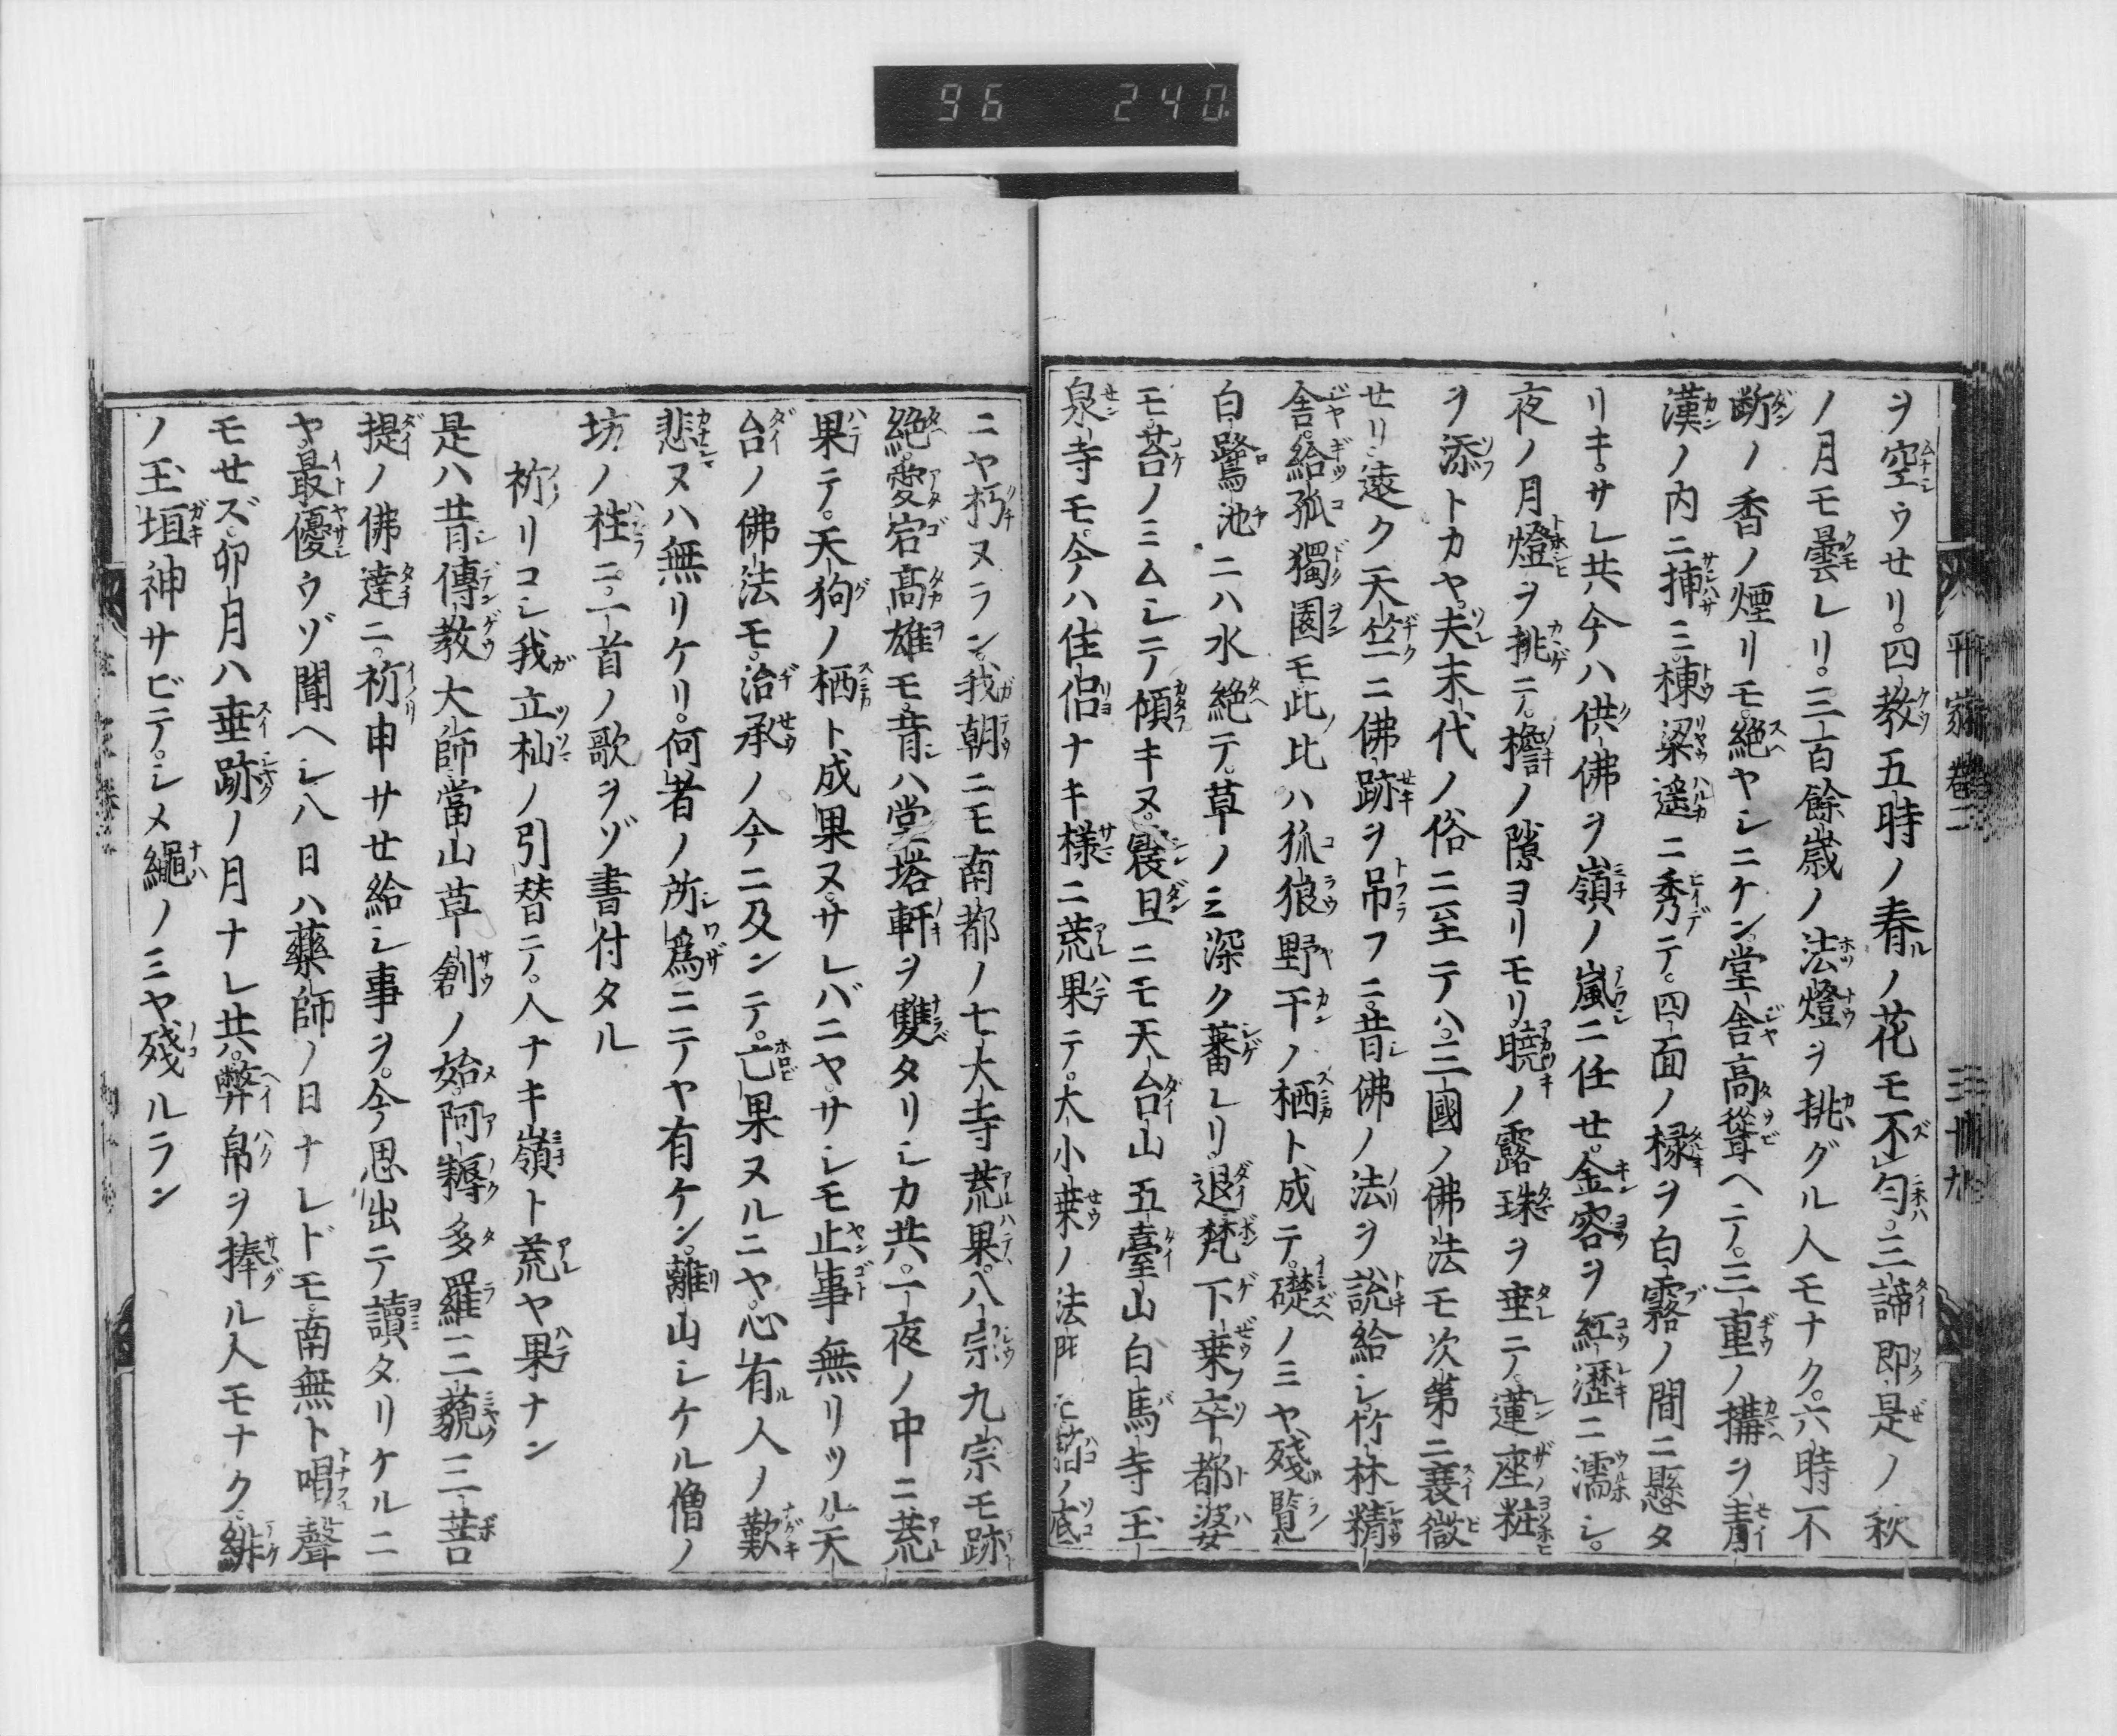 96 240
平家卷二 三十九
ヲ空ウせリ。四教五時ノ春ノ花モ不匂。三諦即是ノ秋
ノ月モ曇レリ。三百餘歳ノ法燈ヲ挑グル人モナク。六時不
断ノ香ノ煙リモ。絶ヤシニケン。堂舎高聳ヘテ。三重ノ搆ヲ青
漢ノ内ニ挿ミ。棟梁遥ニ秀テ。四面ノ椽ヲ白霧ノ間ニ懸タ
リキ。サレ共今ハ供佛ヲ嶺ノ嵐ニ任せ。金容ヲ紅瀝ニ濡シ。
夜ノ月燈ヲ挑テ。檐ノ隙ヨリモリ。曉ノ露珠ヲ垂テ。蓮座ノ粧
ヲ添トカヤ。夫末代ノ俗ニ至テハ。三國ノ佛法モ次第ニ衰微
せリ。遠ク天竺ニ佛跡ヲ吊フニ。昔佛ノ法ヲ説給シ。竹林精
舎。給孤獨園モ。此比ハ狐狼野干ノ栖ト成テ。礎ノミヤ殘覧
白鷺池ニハ水絶テ。草ノミ深ク蕃レリ。退梵下乗ノ卒都婆
モ。苔ノミムシテ傾キヌ。震旦ニモ天台山五臺山白馬寺玉
泉寺モ。今ハ住侶ナキ様ニ荒果テ。大小乗ノ法門モ箱ノ底
ニヤ朽ヌラン。我朝ニモ南都ノ七大寺荒果。八宗九宗モ跡
絶。愛宕高雄モ。昔ハ堂塔軒ヲ雙タリシカ共。一夜ノ中ニ荒
果テ。天狗ノ栖ト成果ヌ。サレバニヤ。サシモ止事無リツル。天
台ノ佛法モ。治承ノ今ニ及ンテ。亡果ヌルニヤ。心有人ノ歎
悲ヌハ無リケリ。何者ノ所爲ニテヤ有ケン。離山シケル僧ノ
坊ノ柱ニ。一首ノ歌ヲゾ書付タル
祈リコシ我立杣ノ引替テ。人ナキ嶺ト荒ヤ果ナン
是ハ昔傳教大師當山草創ノ始。阿耨多羅三藐三菩
提ノ佛達ニ。祈申サせ給シ事ヲ。今思出テ讀タリケルニ
ヤ。最優ウゾ聞ヘシ八日ハ藥師ノ日ナレドモ。南無ト唱聲
モせズ。卯月ハ垂跡ノ月ナレ共。弊帛ヲ捧ル人モナク。緋
ノ玉垣神サビテ。シメ繩ノミヤ殘ルラン